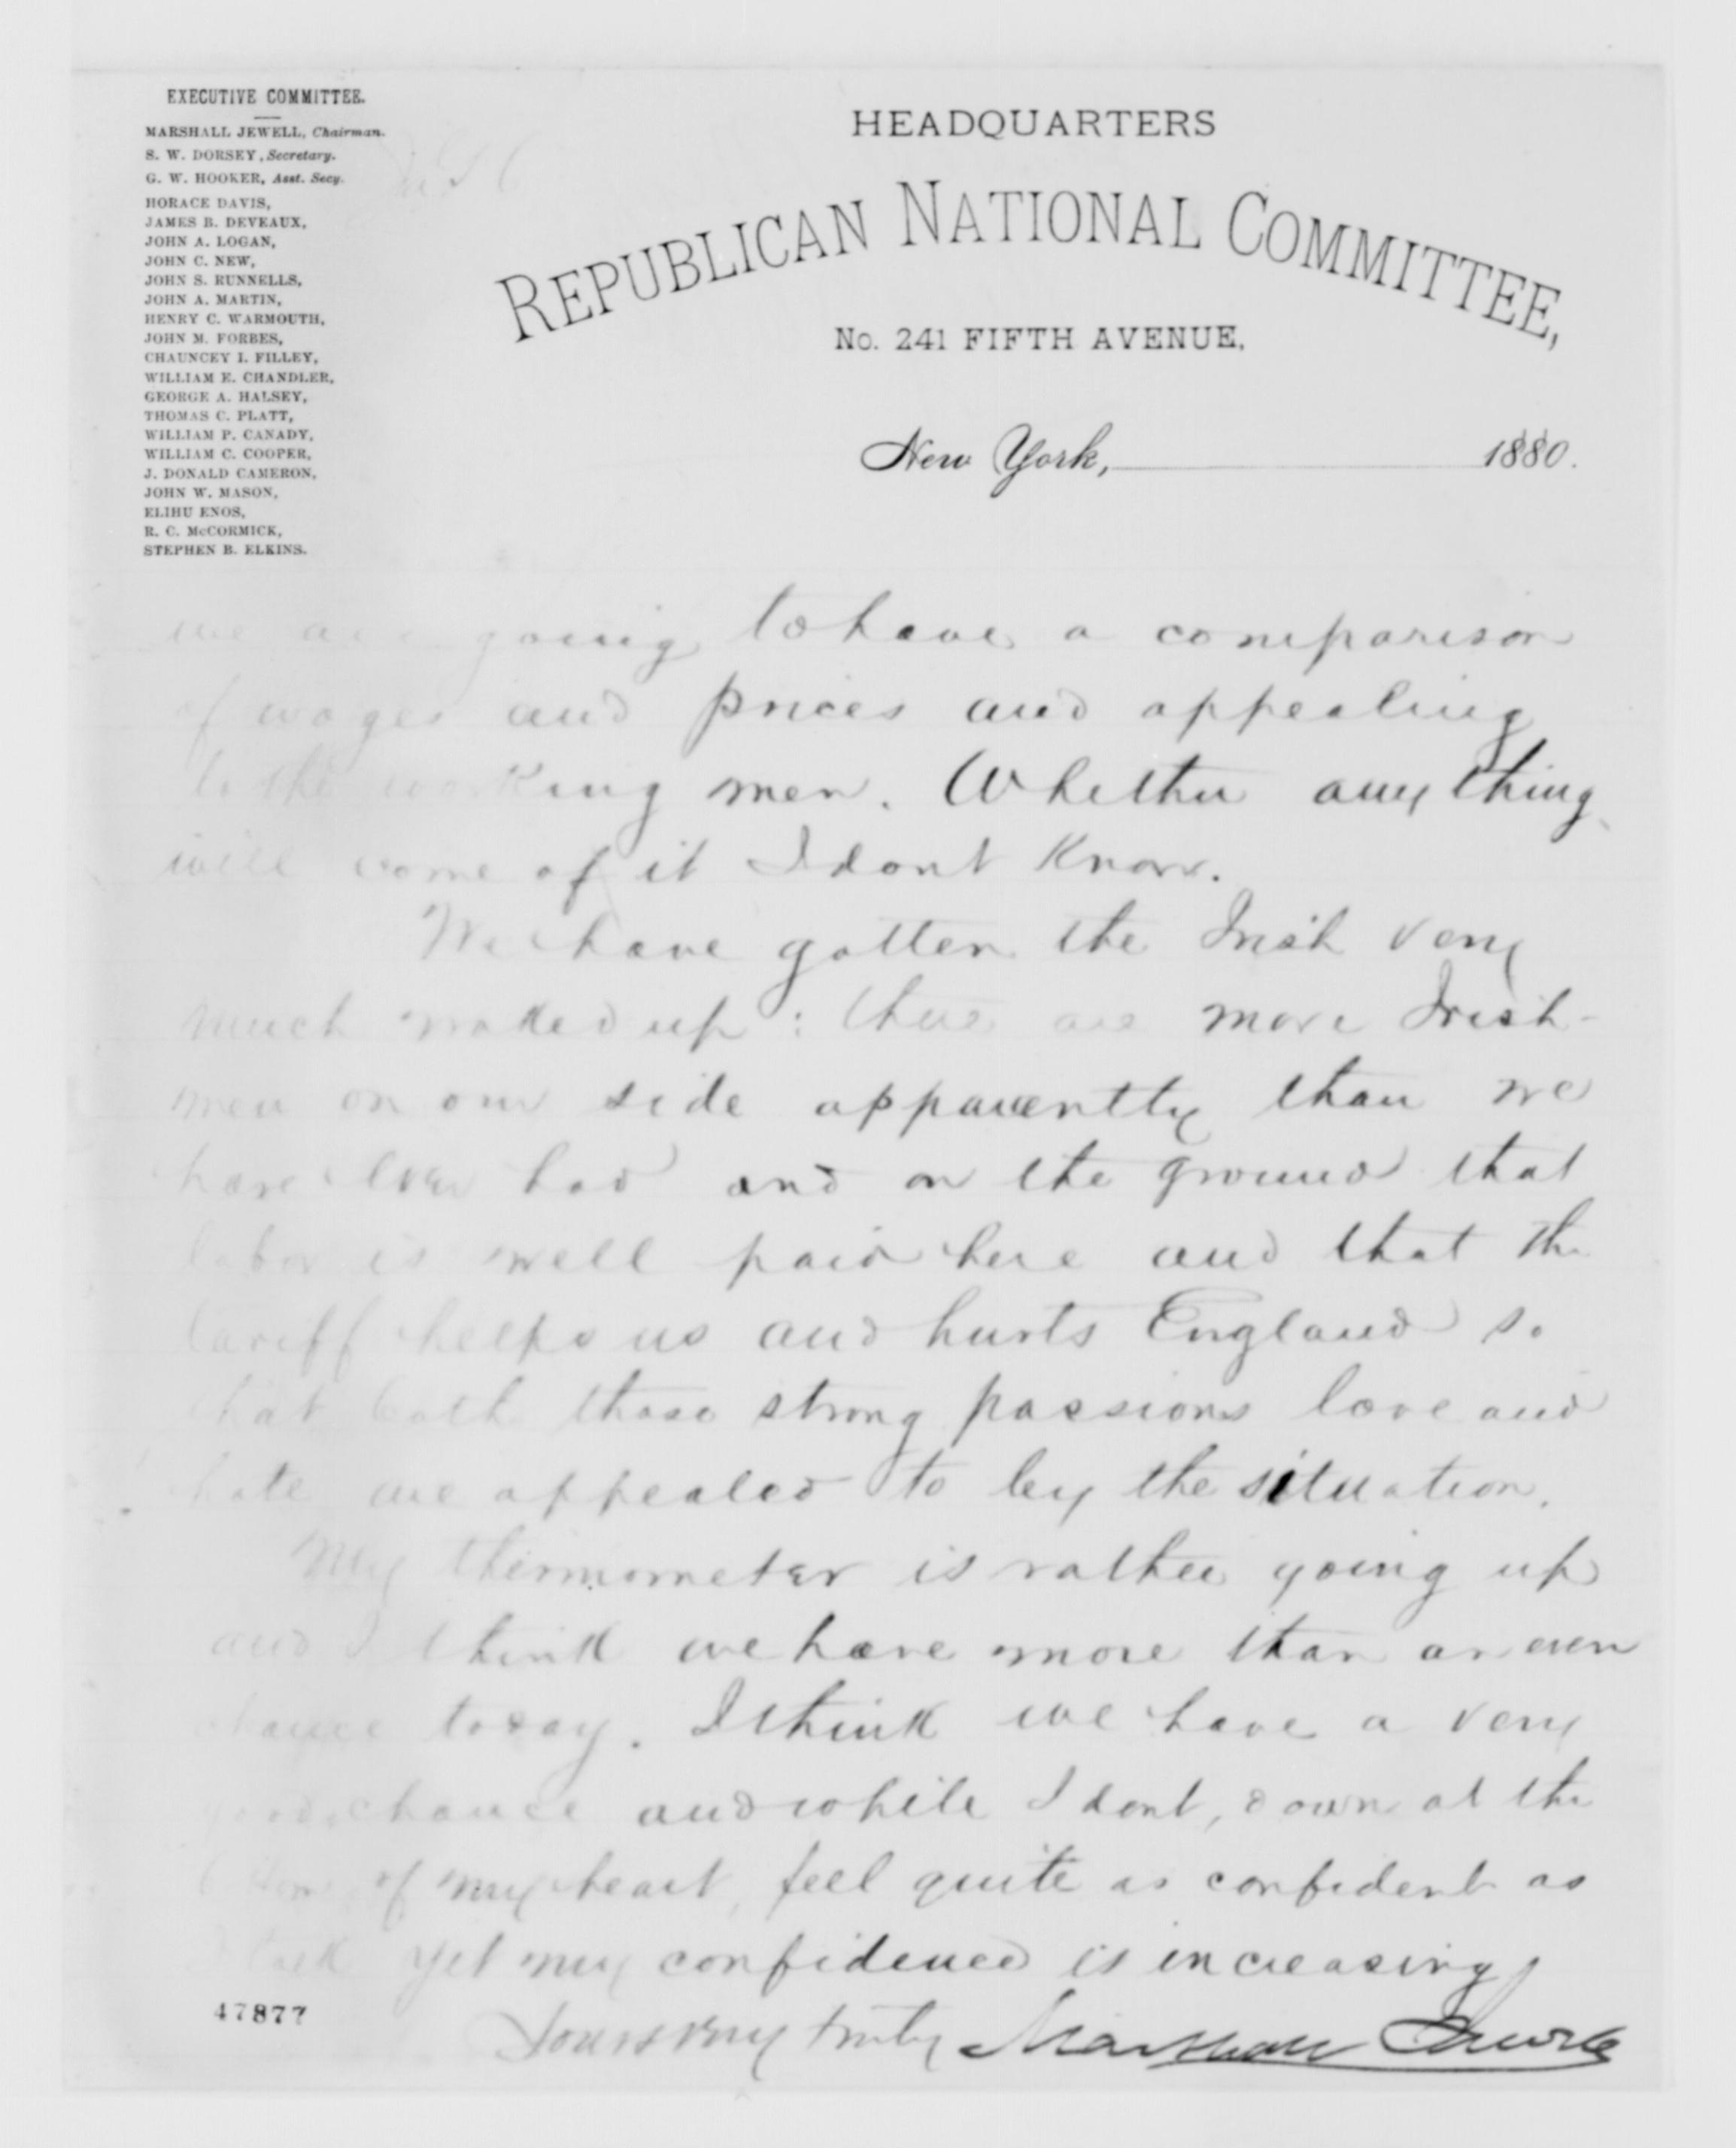 EXECUTIVE COMMITTEE.
MARSHALL JEWELL, Chairman.
S. W. DORSEY, Secretary.
G. W. HOOKER, Asst. Secy.
HORACE DAVIS,
JAMES B. DEVEAUX,
JOHN A. LOGAN,
JOHN C. NEW,
JOHN S. RUNNELLS,
JOHN A. MARTIN,
HENRY C. WARMOUTH,
JOHN M. FORBES,
CHAUNCEY I. FILLEY,
WILLIAM E. CHANDLER,
GEORGE A. HALSEY,
THOMAS C. PLATT,
WILLIAM P. CANADY,
WILLIAM C. COOPER,
J. DONALD CAMERON,
JOHN W. MASON,
ELIHU ENOS,
R. C. McCORMICK,
STEPHEN B. ELKINS.
HEADQUARTERS
REPUBLICAN NATIONAL COMMITTEE,
No. 241 FIFTH AVENUE,
New York, 1880.
we are going to have a comparison
of wages and prices and appealing
to the working men. Whether any thing
will come of it I dont know.
We have gotten the Irish very
much up: there are more Irish-
men on our side apparently than we
have ever had and on the ground that
labor is well paid here and that the
tariff helps us and hurts England so
that both those strong passions love and
hate are appealed to by the situation.
My thermometer is rather going up
and I think we have more than an even
chance today. I think we have a very
good chance and while I dont, down at the
bottom of my heart, feel quite as confident as
I talk yet my confidence is increasing
Yours very truly Marshall Jewell
47877